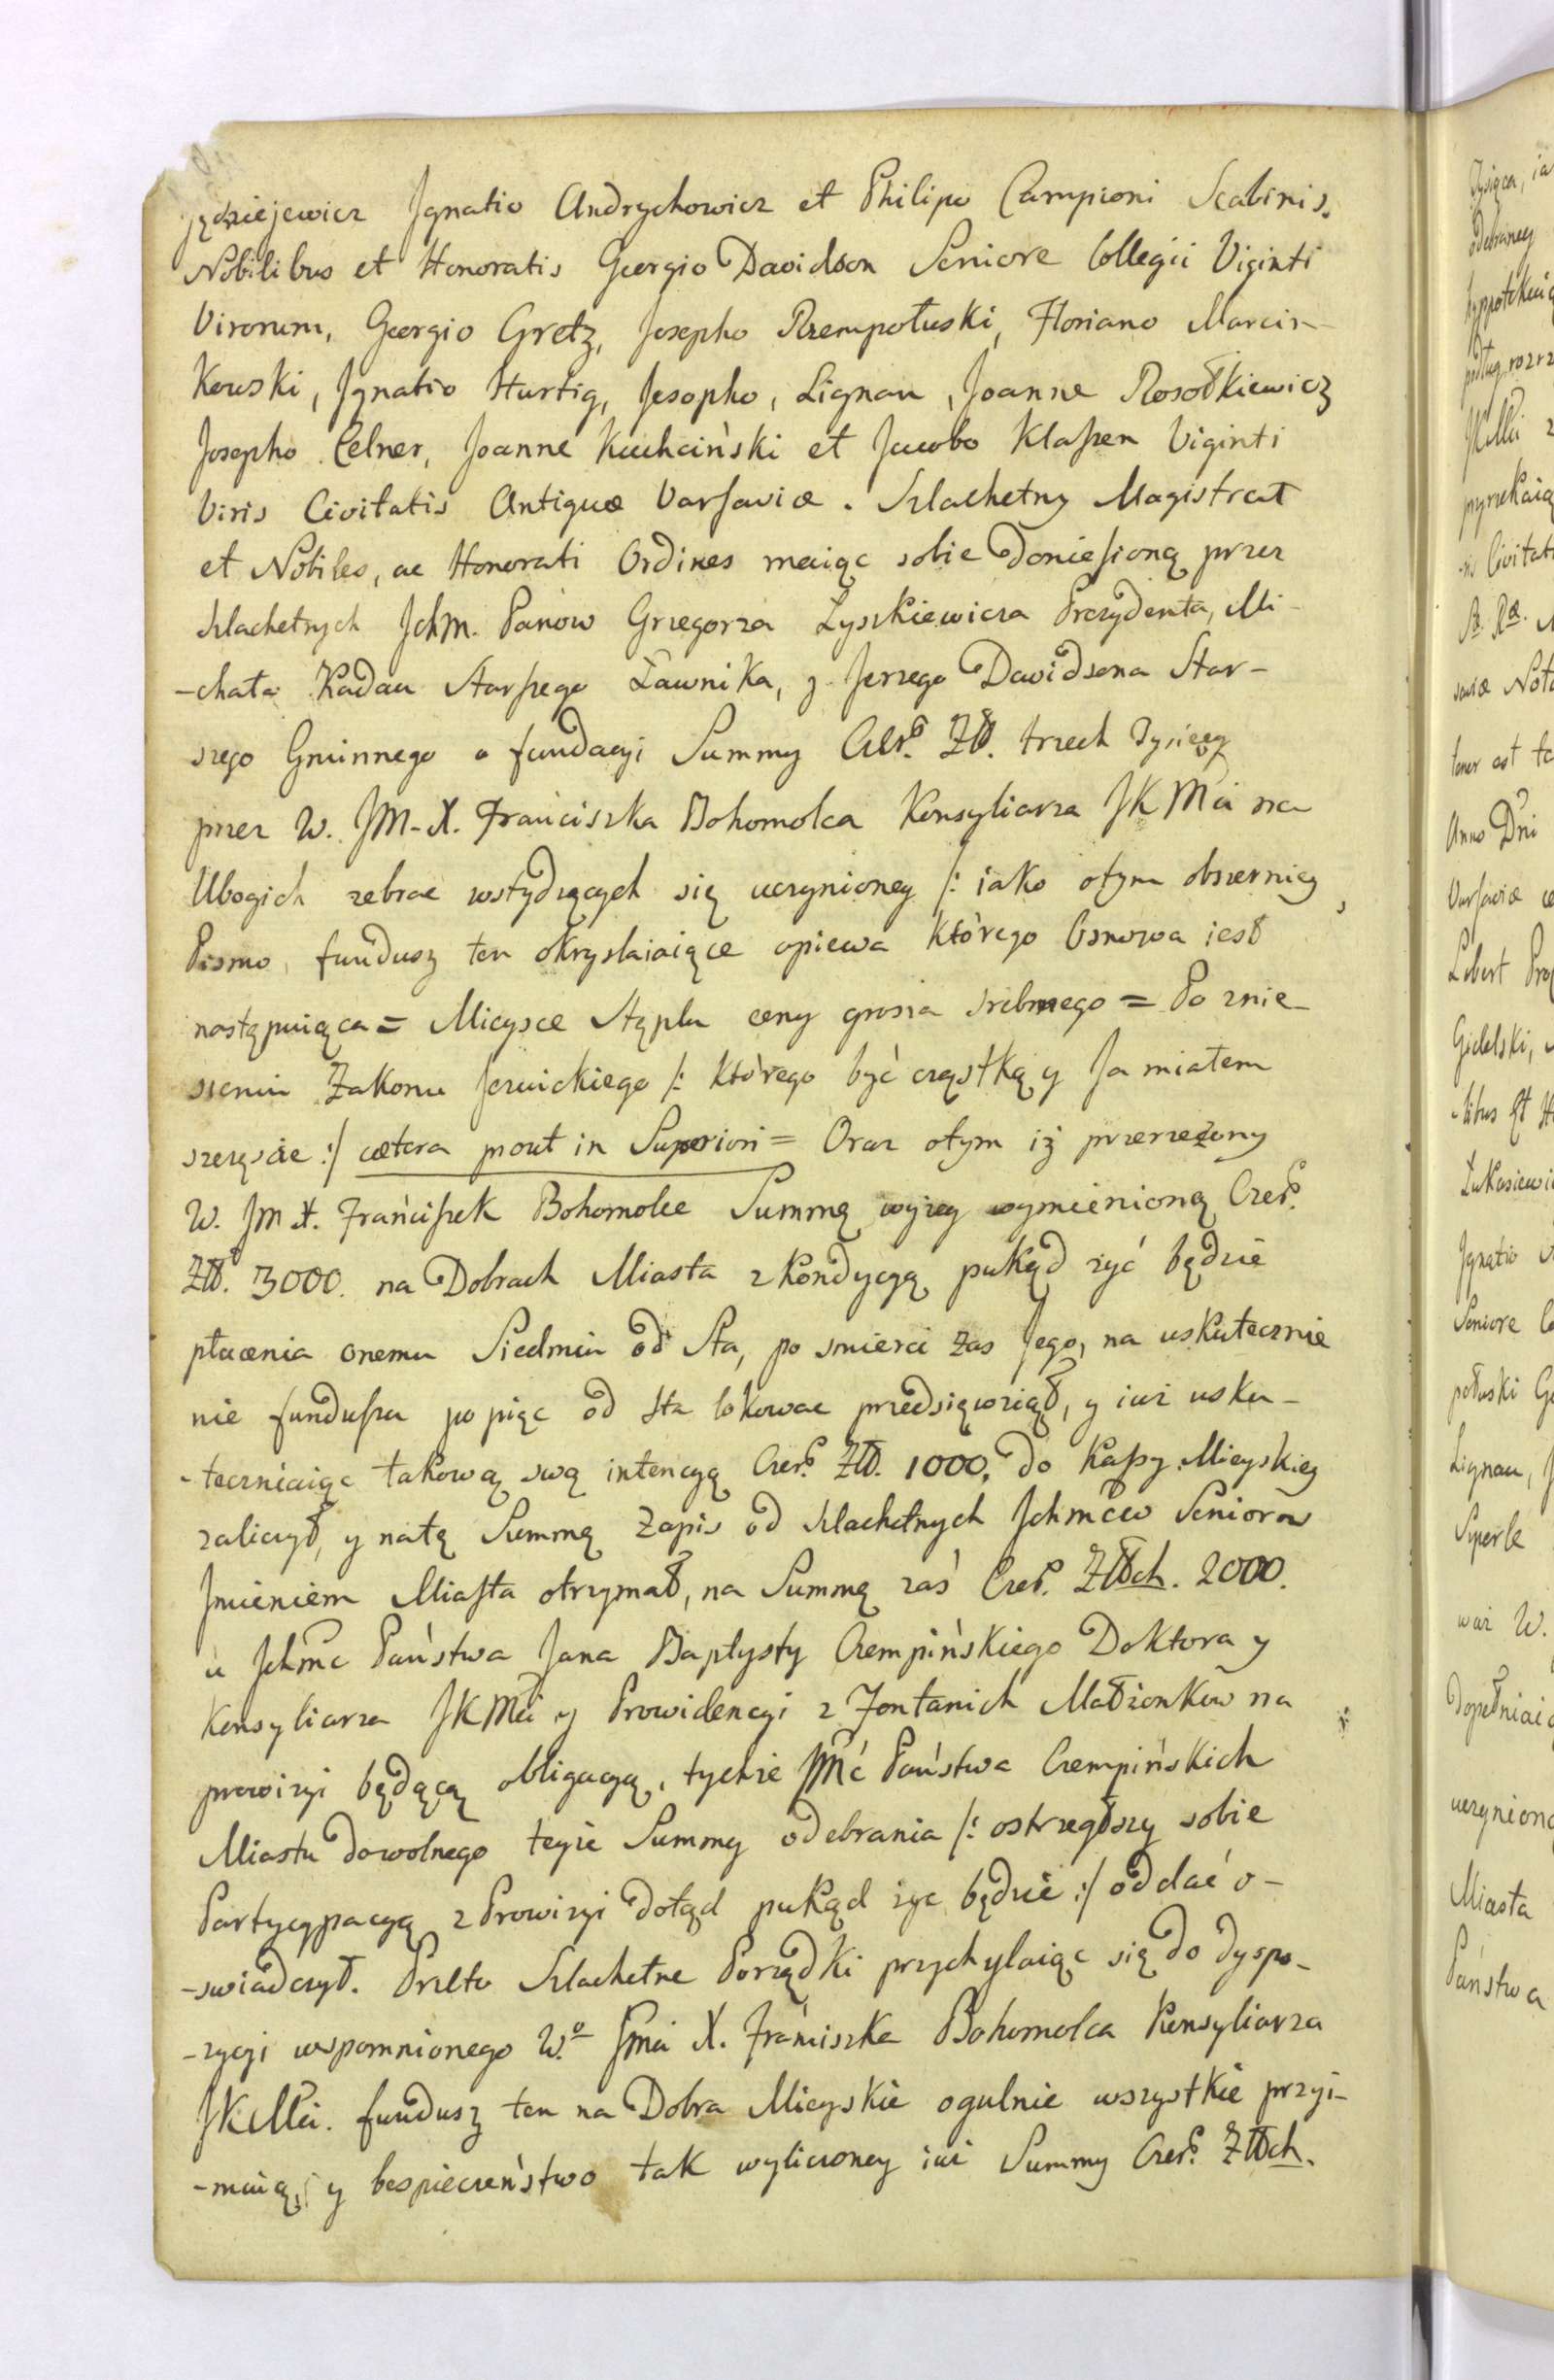 jędziejewicz Ignatio Andrychowicz et Philipo Campioni Scabinis.
Nobilibus et Honoratis Georgio Davidson Seniore Collegii Viginti
Virorum, Georgio Gretz, Josepho Rzempołuski, Floriano Marcin-
kowski, Ignatio Hurtig, Jesopho, Lignau, Joanne Rosołkiewicz
Josepho Celner, Joanne Kuchciński et Jacobo Klaſzen Viginti
Viris Civitatis Antiquæ Varſaviæ. Szlachetny Magistrat
et Nobiles, ac Honorati Ordines maiąc sobie donieſioną przez
szlachetnych Jchm. Panow Grzegorza Łyszkiewicza Prezydenta, Mi-
-chała Kadau Starſzego Ławnika, y Jerzego Davidsona Star-
szego Gminnego o fundacyi Summy Czer. Zł. trzech Tysięcy
przez W. JM-X. Franciszka Bohomolca Konsyliarza JKMci na
Ubogich zebrac wstydzących się uczynioney /: iako otym obszerniey
Pismo, fundusz ten okryslaiaiące opiewa którego Osnowa iest
następuiąca = Mieysce Stęplu ceny grosza srebrnego = Po znie-
sieniu Zakonu Jezuickiego /: którego być cząstką y Ja miałem
szczęscie :/ cætera prout in Superiori = Oraz otym iż przerzeżony
W. JM X. Franciſzek Bohomolec Summę wyżey wymienioną Czer.
Zł. 3000. na Dobrach Miasta z kondycyą pukąd żyć będzie
płacenia onemu Siedmiu od Sta, po smierci zas Jego, na uskutecznie
nie funduſzu po pięc od sta lokowac przedsięwziął, y iuż usku-
-teczniaiąc takową swą intencyą Czer. Zł. 1000. do Kaſsy Mieyskiey
zaliczył, y natę Summę Zapis od szlachetnych Jchmćcw Seniorow
Imieniem Miaſta otrzymał, na Summę zaś Czer. Złch. 2000.
u Jchmc Państwa Jana Baptysty Czempińskiego Doktora y
Konsyliarza JKMci y Prowidencyi z Fontanich Małżonkow na
prowizyi będącą obligacyą, tychże JMć Państwa Czempińskich
Miastu dowolnego teyże Summy odebrania /: ostrzegłszy sobie
Partycypacyą z Prowizyi dotąd pukąd życ będzie :/ oddać o-
-swiadczył. Przeto Szlachetne Porządki przychylaiąc się do dyspo-
-zycyi wspomnionego W.º Jmci X. Franciszka Bohomolca Konsyliarza
JKMci. fundusz ten na Dobra Mieyskie ogulnie wszystkie przyi-
-muią, y bespieczeństwo tak wyliczoney iuż Summy Czer. Złch.